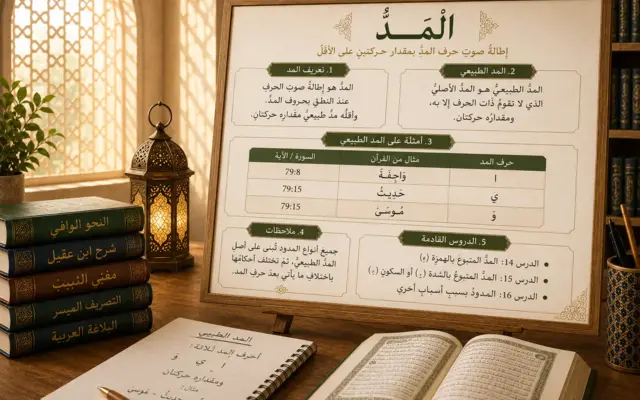 الْمَــدُّ
إطالةُ صوتِ حرفِ المدِّ بمقدارِ حركتينِ على الأقلّ
1. تعريف المد
المدُّ هو إطالةُ صوتِ الحرفِ
عندَ النطقِ بحروفِ المدِّ.
وأقلُّه مدٌّ طبيعيٌّ مقدارُه حركتانِ.
2. المد الطبيعي
المدُّ الطبيعيُّ هو المدُّ الأصليُّ
الذي لا تقومُ ذَاتُ الحرفِ إلا به،
ومقدارُه حركتان.
3. أمثلة على المد الطبيعي
حرف المد مثال من القرآن السورة / الآية
ا وَاجِفَةٌ 79:8
ي حَدِيثُ 79:15
وَ مُوسَىٰ 79:15
4. ملاحظات
جميعُ أنواعِ المدودِ تُبنى على أصلِ
المدِّ الطبيعيِّ، ثمّ تختلفُ أحكامُها
باختلافِ ما يأتي بعدَ حرفِ المد.
5. الدروس القادمة
الدرس 14: المدُّ المتبوعُ بالهمزةِ (ء)
الدرس 15: المدُّ المتبوعُ بالشدة (ّ) أو السكونِ (ْ)
الدرس 16: المدودُ بسببِ أسبابٍ أخرى
النحو الوافي
شرح ابن عقيل
التصريف الميسر
البلاغة العربية
المد الطبيعي
أحرف المد ثلاثة:
ا - ي - و
ومقداره حركتان